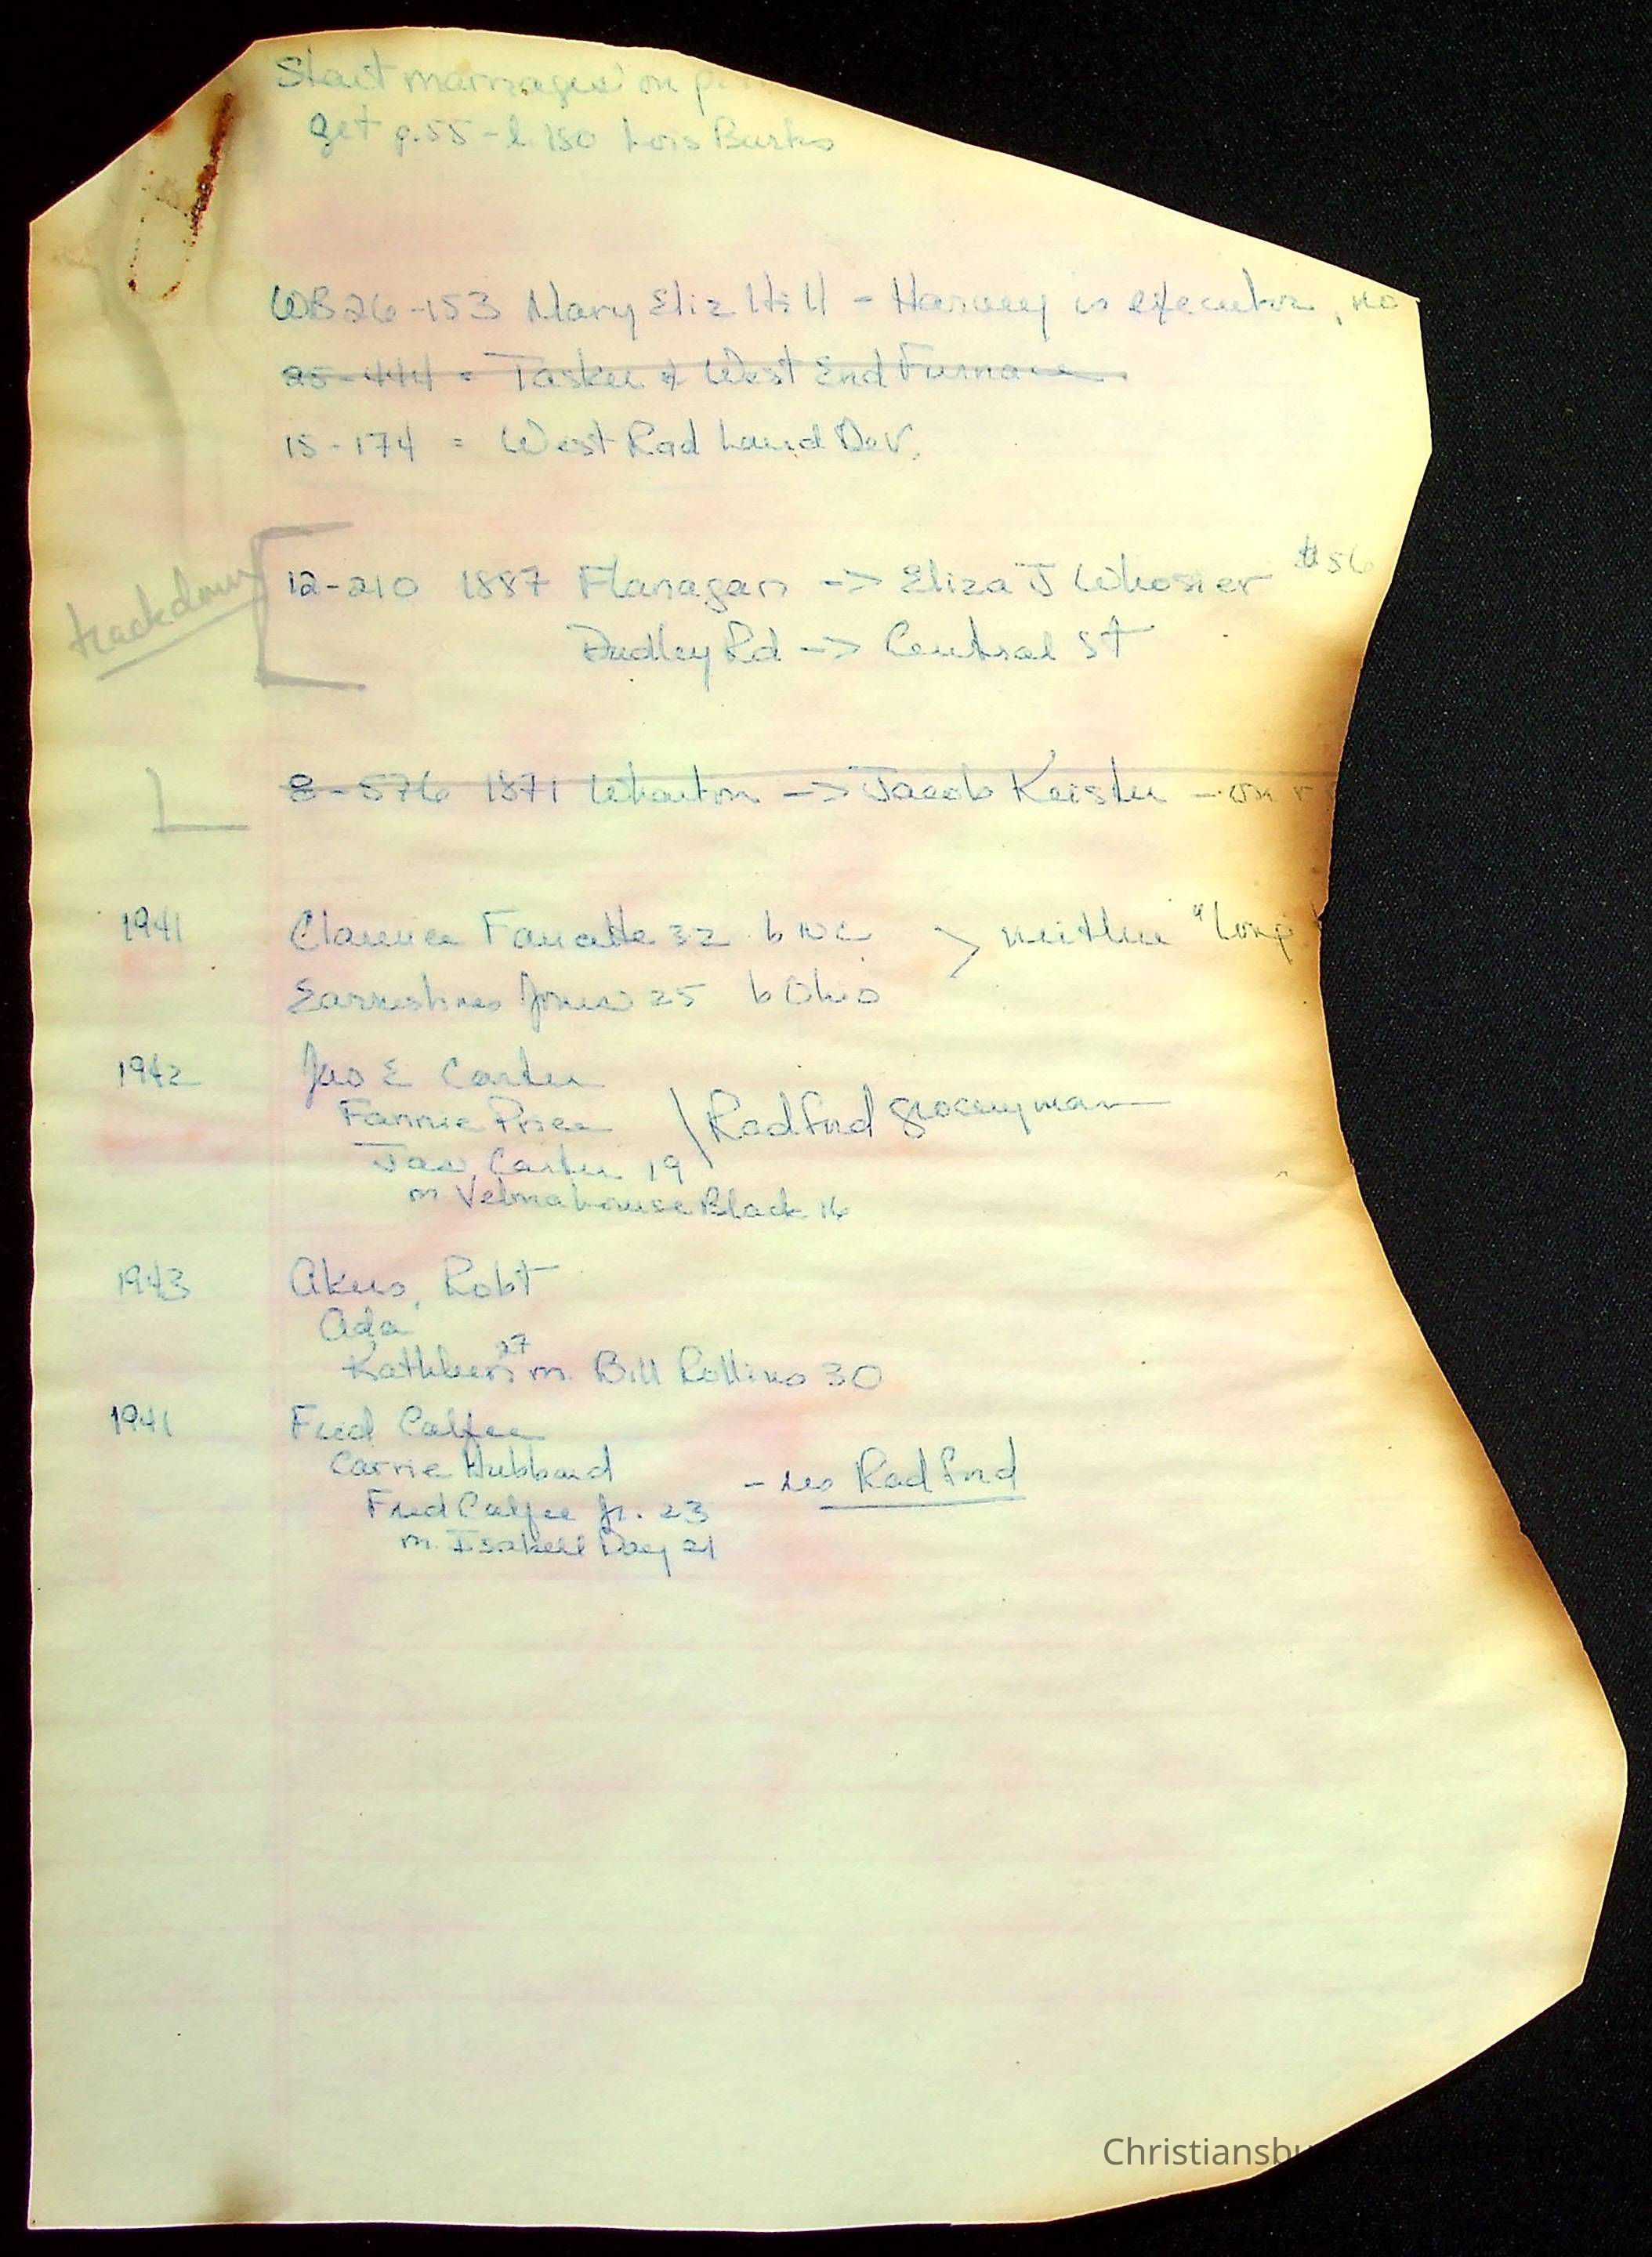 Start marriages on p.
get p.55 - l. 150 Lois Burks
WB26-153 Mary Eliz Hill - Harvey is executor, no
25-444 = Tasker & West End Furnace
15-174 = West Rad Land Dev.
trackdown
12-210 1887 Flanagan -> Eliza J Whosier #56
Dudley Rd -> Central St
8-576 1871 Wharton -> Jacob Keister - on r
1941 Clarence Faucette 32 b NC > neither "long
Earnestine Jones 25 b Ohio
1942 Jno E Carter
Fannie Price \ Radford groceryman
Jas. Carter 19
m Velma Louise Black 16
1943 Akers, Robt
Ada
Kathleen 27 m. Bill Rollins 30
1941 Fred Calfee
Carrie Hubbard - no Radford
Fred Calfee Jr. 23
m. Isabell Day 21
Christiansbu